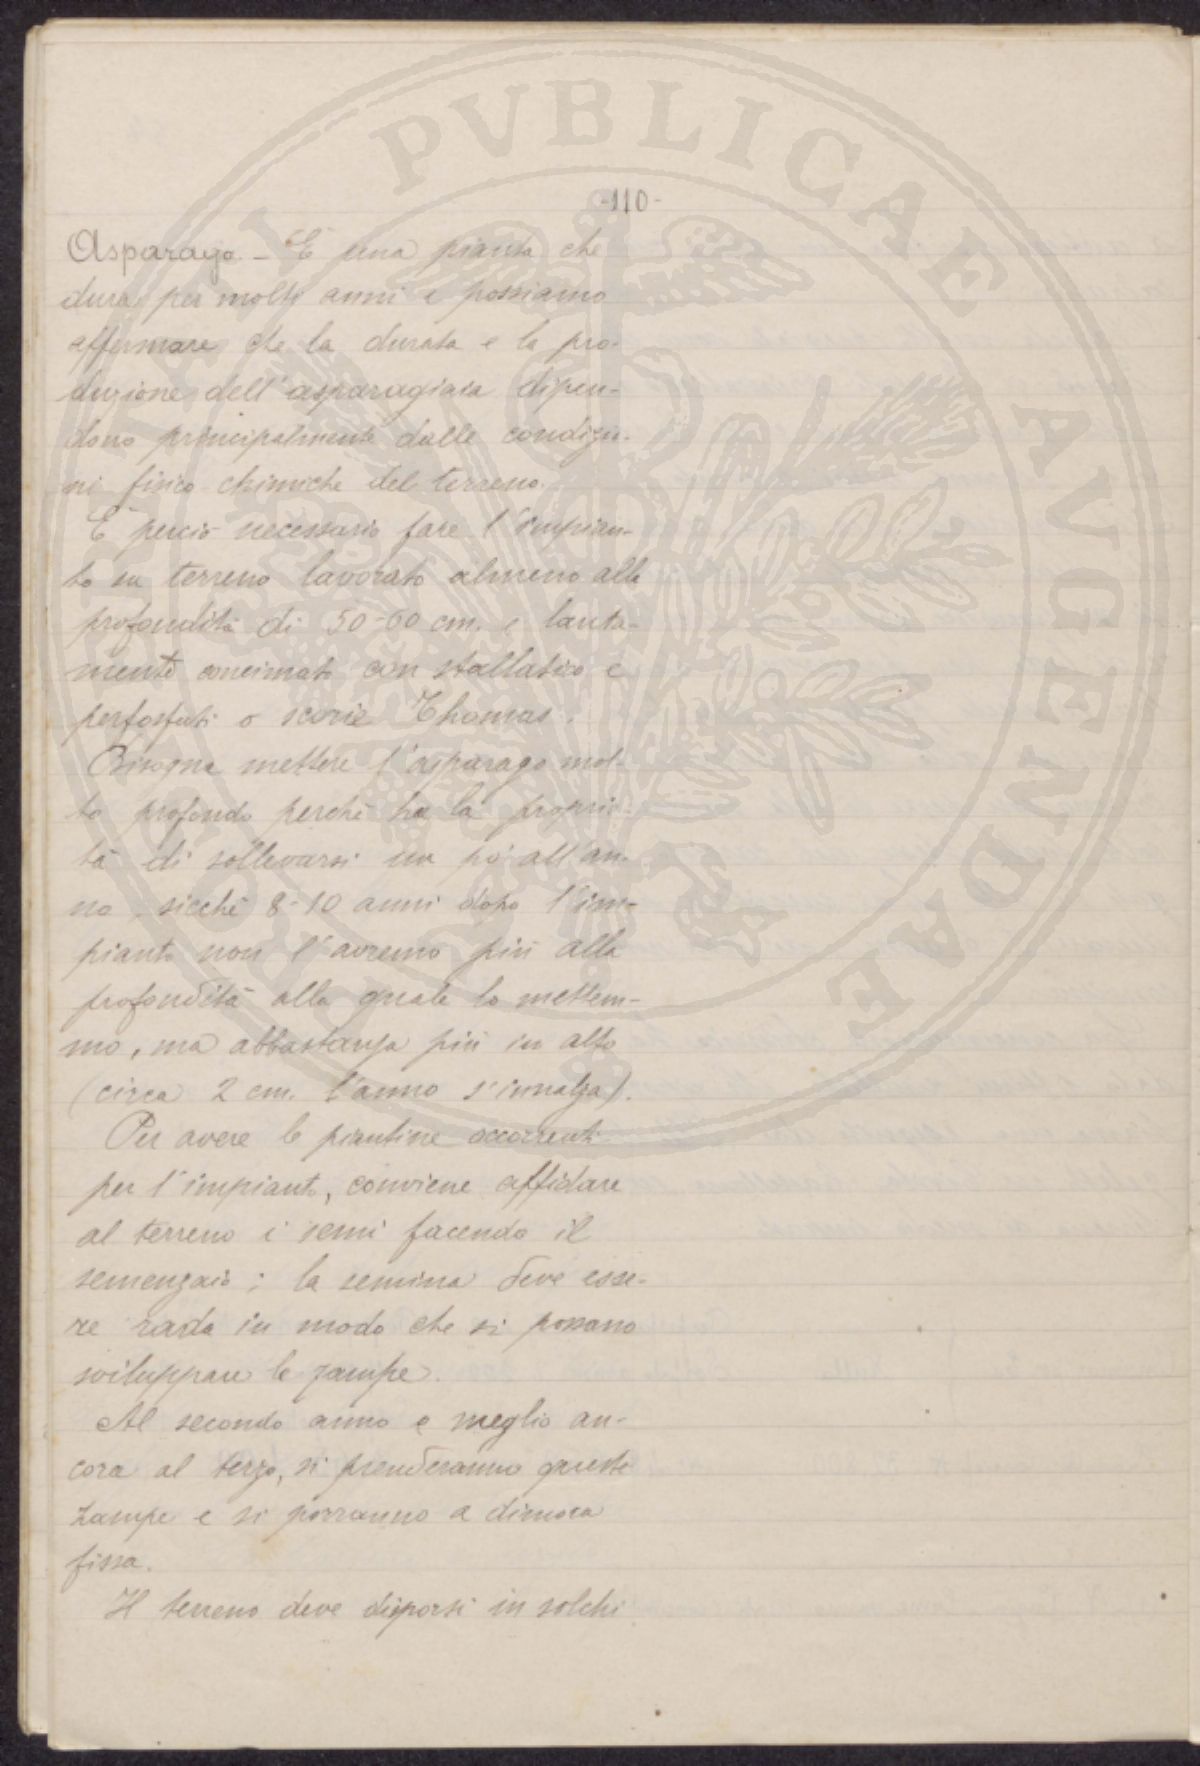 -110-
Asparago - È una pianta che
dura per molti anni e possiamo
affermare che la durata e la pro-
duzione dell'asparagiaia dipen-
dono principalmente dalle condizio-
ni fisico-chimiche del terreno.
È perciò necessario fare l'impian-
to su terreno lavorato almeno alla
profondità di 50-60 cm. e lauta-
mente concimato con stallatico e
perfosfati o scorie Thomas.
Bisogna mettere l'asparago mol-
to profondo perchè ha la proprie-
tà di sollevarsi un pò all'an-
no, sicchè 8-10 anni dopo l'im-
pianto non l'avremo più alla
profondità alla quale lo mettem-
mo, ma abbastanza più in alto
(circa 2 cm. l'anno s'innalza).
Per avere le piantine occorrenti
per l'impianto, conviene affidare
al terreno i semi facendo il
semenzaio; la semina deve esse-
re rada in modo che si possano
sviluppare le zampe.
Al secondo anno e meglio an-
cora al terzo, si prenderanno queste
zampe e si porranno a dimora
fissa.
Il terreno deve disporsi in solchi
PVBLICAE AVGENDAE